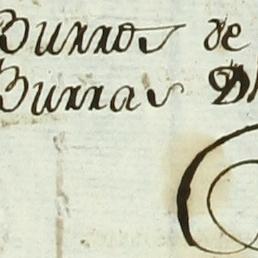 Burros de
Burras